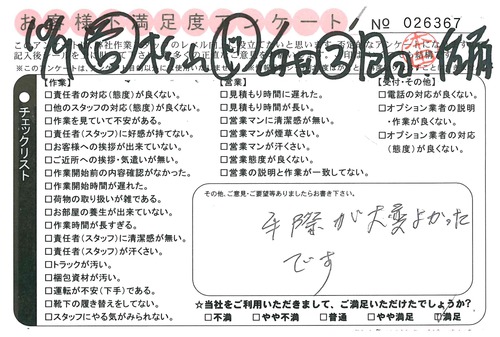 お客様不満足度アンケート
No 026367
チェックリスト
【作業】
□責任者の対応(態度)が良くない。
□他のスタッフの対応(態度)が良くない。
□作業を見ていて不安がある。
□責任者(スタッフ)に好感が持てない。
□お客様への挨拶が出来ていない。
□ご近所への挨拶・気遣いが無い。
□作業開始前の内容確認がなかった。
□作業開始時間が遅れた。
□荷物の取り扱いが雑である。
□お部屋の養生が出来ていない。
□作業時間が長すぎる。
□責任者(スタッフ)に清潔感が無い。
□責任者(スタッフ)が汗くさい。
□トラックが汚い。
□梱包資材が汚い。
□運転が不安(下手)である。
□靴下の履き替えをしてない。
□スタッフにやる気がみられない。
【営業】
□見積もり時間に遅れた。
□見積もり時間が長い。
□営業マンに清潔感が無い。
□営業マンが煙草くさい。
□営業マンが汗くさい。
□営業態度が良くない。
□営業の説明と作業が一致してない。
【受付・その他】
□電話の対応が良くない。
□オプション業者の説明
・作業が良くない。
□オプション業者の対応
(態度)が良くない。
その他、ご意見・ご要望等ありましたらお書き下さい。
手際が大変よかった
です
☆当社をご利用いただきまして、ご満足いただけたでしょうか?
□不満 □やや不満 □普通 □やや満足 ☑満足